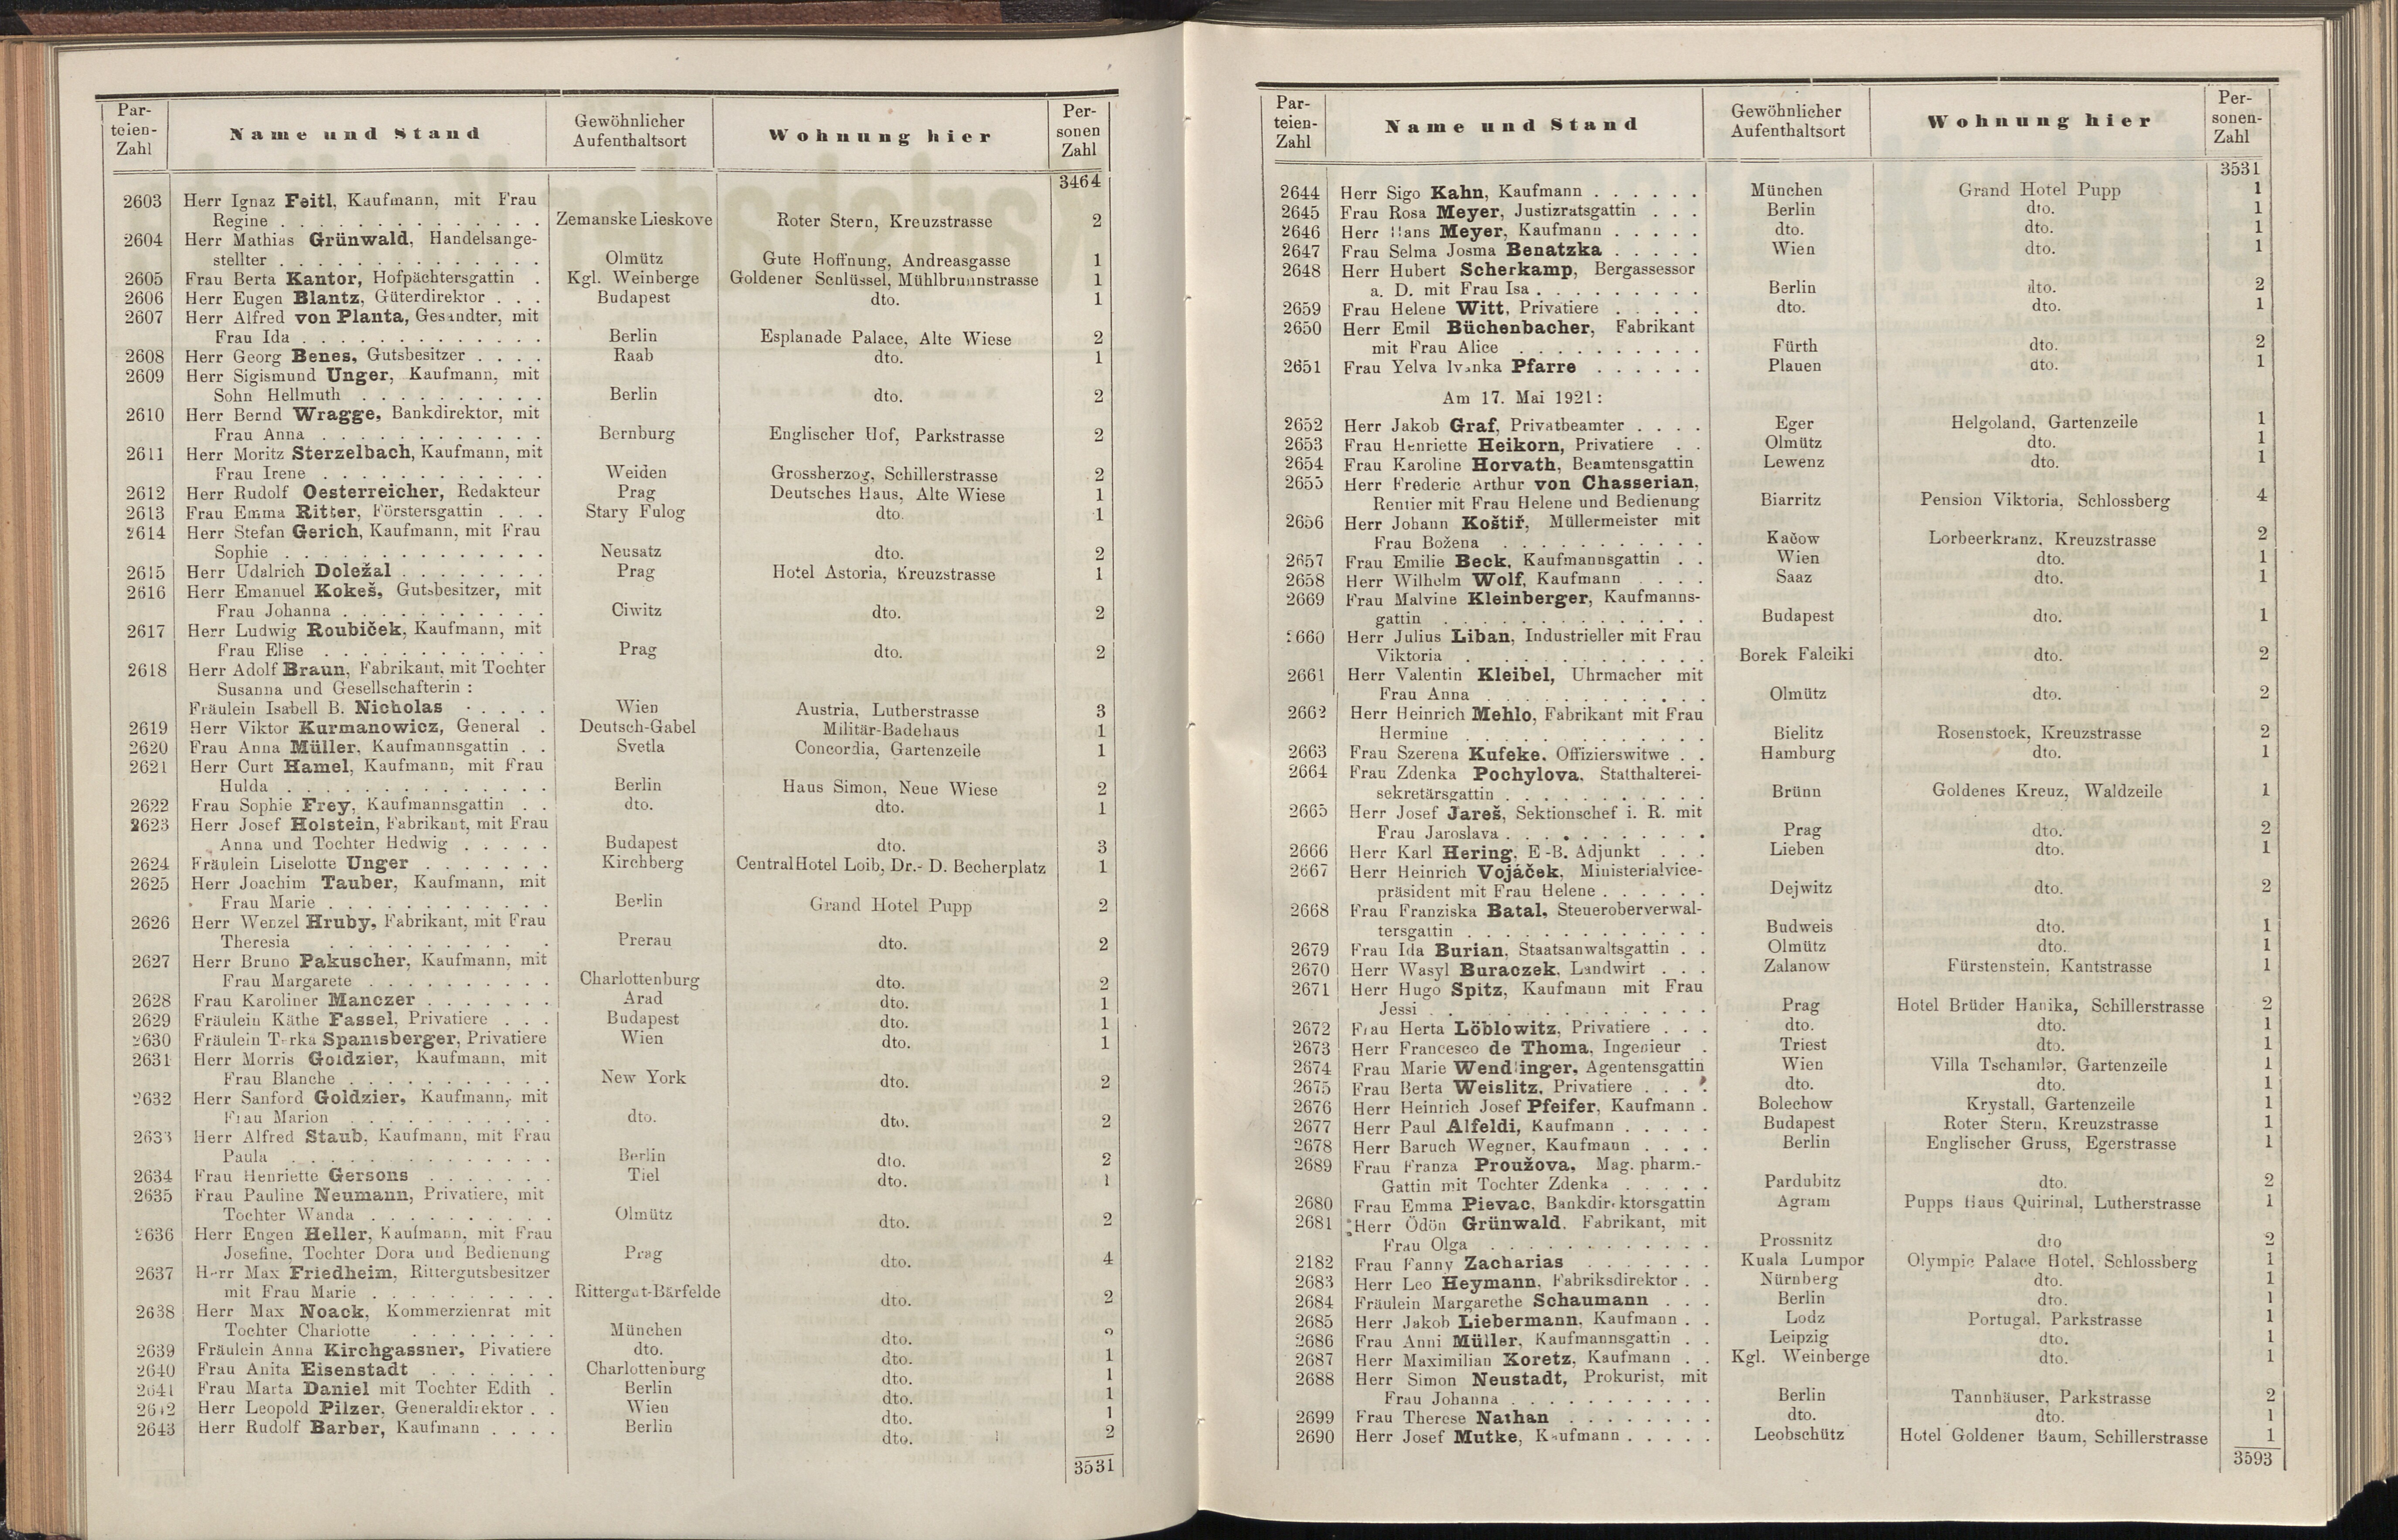 Par-
teien-
Zahl
Name und Stand
Gewöhnlicher
Aufenthaltsort
Wohnung hier
Per-
sonen
Zahl
3464
2603 Herr Ignaz Feitl, Kaufmann, mit Frau
Regine . . . Zemanske Lieskove Roter Stern, Kreuzstrasse 2
2604 Herr Mathias Grünwald, Handelsange-
stellter . . . Olmütz Gute Hoffnung, Andreasgasse 1
2605 Frau Berta Kantor, Hofpächtersgattin . Kgl. Weinberge Goldener Schlüssel, Mühlbrunnstrasse 1
2606 Herr Eugen Blantz, Güterdirektor . . . Budapest dto. 1
2607 Herr Alfred von Planta, Gesandter, mit
Frau Ida . . . Berlin Esplanade Palace, Alte Wiese 2
2608 Herr Georg Benes, Gutsbesitzer . . . . Raab dto. 1
2609 Herr Sigismund Unger, Kaufmann, mit
Sohn Hellmuth . . . Berlin dto. 2
2610 Herr Bernd Wragge, Bankdirektor, mit
Frau Anna . . . Bernburg Englischer Hof, Parkstrasse 2
2611 Herr Moritz Sterzelbach, Kaufmann, mit
Frau Irene . . . Weiden Grossherzog, Schillerstrasse 2
2612 Herr Rudolf Oesterreicher, Redakteur Prag Deutsches Haus, Alte Wiese 1
2613 Frau Emma Ritter, Förstersgattin . . . Stary Fulog dto. 1
2614 Herr Stefan Gerich, Kaufmann, mit Frau
Sophie . . . Neusatz dto. 2
2615 Herr Udalrich Doležal . . . Prag Hotel Astoria, Kreuzstrasse 1
2616 Herr Emanuel Kokeš, Gutsbesitzer, mit
Frau Johanna . . . Ciwitz dto. 2
2617 Herr Ludwig Roubiček, Kaufmann, mit
Frau Elise . . . Prag dto. 2
2618 Herr Adolf Braun, Fabrikant, mit Tochter
Susanna und Gesellschafterin :
Fräulein Isabell B. Nicholas . . . Wien Austria, Lutherstrasse 3
2619 Herr Viktor Kurmanowicz, General . Deutsch-Gabel Militär-Badehaus 1
2620 Frau Anna Müller, Kaufmannsgattin . . Svetla Concordia, Gartenzeile 1
2621 Herr Curt Hamel, Kaufmann, mit Frau
Hulda . . . Berlin Haus Simon, Neue Wiese 2
2622 Frau Sophie Frey, Kaufmannsgattin . . dto. dto. 1
2623 Herr Josef Holstein, Fabrikant, mit Frau
Anna und Tochter Hedwig . . . Budapest dto. 3
2624 Fräulein Liselotte Unger . . . Kirchberg Central Hotel Loib, Dr.- D. Becherplatz 1
2625 Herr Joachim Tauber, Kaufmann, mit
Frau Marie . . . Berlin Grand Hotel Pupp 2
2626 Herr Wenzel Hruby, Fabrikant, mit Frau
Theresia . . . Prerau dto. 2
2627 Herr Bruno Pakuscher, Kaufmann, mit
Frau Margarete . . . Charlottenburg dto. 2
2628 Frau Karoliner Manczer . . . Arad dto. 1
2629 Fräulein Käthe Fassel, Privatiere . . . Budapest dto. 1
2630 Fräulein Spanisberger, Privatiere Wien dto. 1
2631 Herr Morris Goldzier, Kaufmann, mit
Frau Blanche . . . New York dto. 2
2632 Herr Sanford Goldzier, Kaufmann, mit
Frau Marion . . . dto. dto. 2
2633 Herr Alfred Staub, Kaufmann, mit Frau
Paula . . . Berlin dto. 2
2634 Frau Henriette Gersons . . . Tiel dto. 1
2635 Frau Pauline Neumann, Privatiere, mit
Tochter Wanda . . . Olmütz dto. 2
2636 Herr Eugen Heller, Kaufmann, mit Frau
Josefine, Tochter Dora und Bedienung Prag dto. 4
2637 Herr Max Friedheim, Rittergutsbesitzer
mit Frau Marie . . . Rittergut-Bärfelde dto. 2
2638 Herr Max Noack, Kommerzienrat mit
Tochter Charlotte . . . München dto. 2
2639 Fräulein Anna Kirchgassner, Pivatiere dto. dto. 1
2640 Frau Anita Eisenstadt . . . Charlottenburg dto. 1
2641 Frau Marta Daniel mit Tochter Edith . Berlin dto. 1
2642 Herr Leopold Pilzer, Generaldirektor . . Wien dto. 1
2643 Herr Rudolf Barber, Kaufmann . . . . Berlin dto. 2
3531
Par-
teien-
Zahl
Name und Stand
Gewöhnlicher
Aufenthaltsort
Wohnung hier
Per-
sonen-
Zahl
3531
2644 Herr Sigo Kahn, Kaufmann . . . München Grand Hotel Pupp 1
2645 Frau Rosa Meyer, Justizratsgattin . . . Berlin dto. 1
2646 Herr Hans Meyer, Kaufmann . . . dto. dto. 1
2647 Frau Selma Josma Benatzka . . . Wien dto. 1
2648 Herr Hubert Scherkamp, Bergassessor
a. D. mit Frau Isa . . . Berlin dto. 2
2659 Frau Helene Witt, Privatiere . . . dto. dto. 1
2650 Herr Emil Büchenbacher, Fabrikant
mit Frau Alice . . . Fürth dto. 2
2651 Frau Yelva Ivanka Pfarre . . . Plauen dto. 1
Am 17. Mai 1921:
2652 Herr Jakob Graf, Privatbeamter . . . . Eger Helgoland, Gartenzeile 1
2653 Frau Henriette Heikorn, Privatiere . . Olmütz dto. 1
2654 Frau Karoline Horvath, Beamtensgattin Lewenz dto. 1
2655 Herr Frederic Arthur von Chasserian,
Rentier mit Frau Helene und Bedienung Biarritz Pension Viktoria, Schlossberg 4
2656 Herr Johann Koštiř, Müllermeister mit
Frau Božena . . . Kačow Lorbeerkranz, Kreuzstrasse 2
2657 Frau Emilie Beck, Kaufmannsgattin . . Wien dto. 1
2658 Herr Wilhelm Wolf, Kaufmann . . . . Saaz dto. 1
2669 Frau Malvine Kleinberger, Kaufmanns-
gattin . . . Budapest dto. 1
2660 Herr Julius Liban, Industrieller mit Frau
Viktoria . . . Borek Falciki dto. 2
2661 Herr Valentin Kleibel, Uhrmacher mit
Frau Anna . . . Olmütz dto. 2
2662 Herr Heinrich Mehlo, Fabrikant mit Frau
Hermine . . . Bielitz Rosenstock, Kreuzstrasse 2
2663 Frau Szerena Kufeke, Offizierswitwe . . Hamburg dto. 1
2664 Frau Zdenka Pochylova, Statthalterei-
sekretärsgattin . . . Brünn Goldenes Kreuz, Waldzeile 1
2665 Herr Josef Jareš, Sektionschef i. R. mit
Frau Jaroslava . . . Prag dto. 2
2666 Herr Karl Hering, E.-B. Adjunkt . . . Lieben dto. 1
2667 Herr Heinrich Vojáček, Ministerialvice-
präsident mit Frau Helene . . . Dejwitz dto. 2
2668 Frau Franziska Batal, Steueroberverwal-
tersgattin . . . Budweis dto. 1
2679 Frau Ida Burian, Staatsanwaltsgattin . . Olmütz dto. 1
2670 Herr Wasyl Buraczek, Landwirt . . . Zalanow Fürstenstein, Kantstrasse 1
2671 Herr Hugo Spitz, Kaufmann mit Frau
Jessi . . . Prag Hotel Brüder Hanika, Schillerstrasse 2
2672 Frau Herta Löblowitz, Privatiere . . . dto. dto. 1
2673 Herr Francesco de Thoma, Ingenieur . Triest dto. 1
2674 Frau Marie Wendlinger, Agentensgattin Wien Villa Tschamler, Gartenzeile 1
2675 Frau Berta Weislitz, Privatiere . . . . dto. dto. 1
2676 Herr Heinrich Josef Pfeifer, Kaufmann . Bolechow Krystall, Gartenzeile 1
2677 Herr Paul Alfeldi, Kaufmann . . . Budapest Roter Stern, Kreuzstrasse 1
2678 Herr Baruch Wegner, Kaufmann . . . . Berlin Englischer Gruss, Egerstrasse 1
2689 Frau Franza Proužova, Mag. pharm.-
Gattin mit Tochter Zdenka . . . Pardubitz dto. 2
2680 Frau Emma Pievac, Bankdirektorsgattin Agram Pupps Haus Quirinal, Lutherstrasse 1
2681 Herr Ödön Grünwald, Fabrikant, mit
Frau Olga . . . Prossnitz dto 2
2182 Frau Fanny Zacharias . . . Kuala Lumpor Olympic Palace Hotel, Schlossberg 1
2683 Herr Leo Heymann, Fabriksdirektor . . Nürnberg dto. 1
2684 Fräulein Margarethe Schaumann . . . Berlin dto. 1
2685 Herr Jakob Liebermann, Kaufmann . . Lodz Portugal, Parkstrasse 1
2686 Frau Anni Müller, Kaufmannsgattin . . Leipzig dto. 1
2687 Herr Maximilian Koretz, Kaufmann . . Kgl. Weinberge dto. 1
2688 Herr Simon Neustadt, Prokurist, mit
Frau Johanna . . . Berlin Tannhäuser, Parkstrasse 2
2699 Frau Therese Nathan . . . dto. dto. 1
2690 Herr Josef Mutke, Kaufmann . . . Leobschütz Hotel Goldener Baum, Schillerstrasse 1
3593